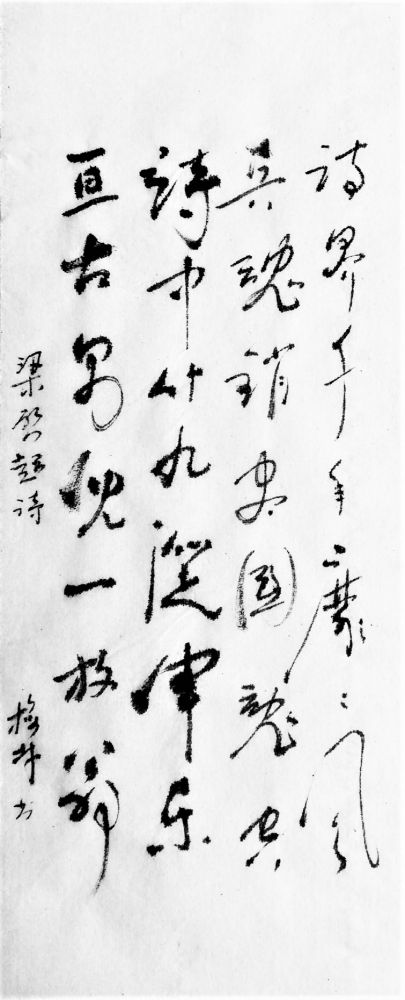 诗界千年靡〻风
兵魂销尽國魂空
诗中什九從军乐
亘古男兒一放翁
梁启超诗
书